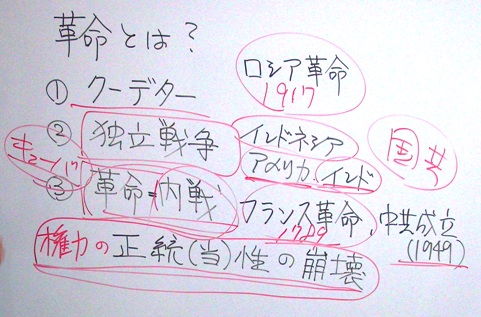 革命とは?
① クーデター
ロシア革命
1917
② 独立戦争
インドネシア
アメリカ、インド
国共
キューバ
③ 革命=内戦
フランス革命、中共成立
1789
(1949)
権力の正統(当)性の崩壊